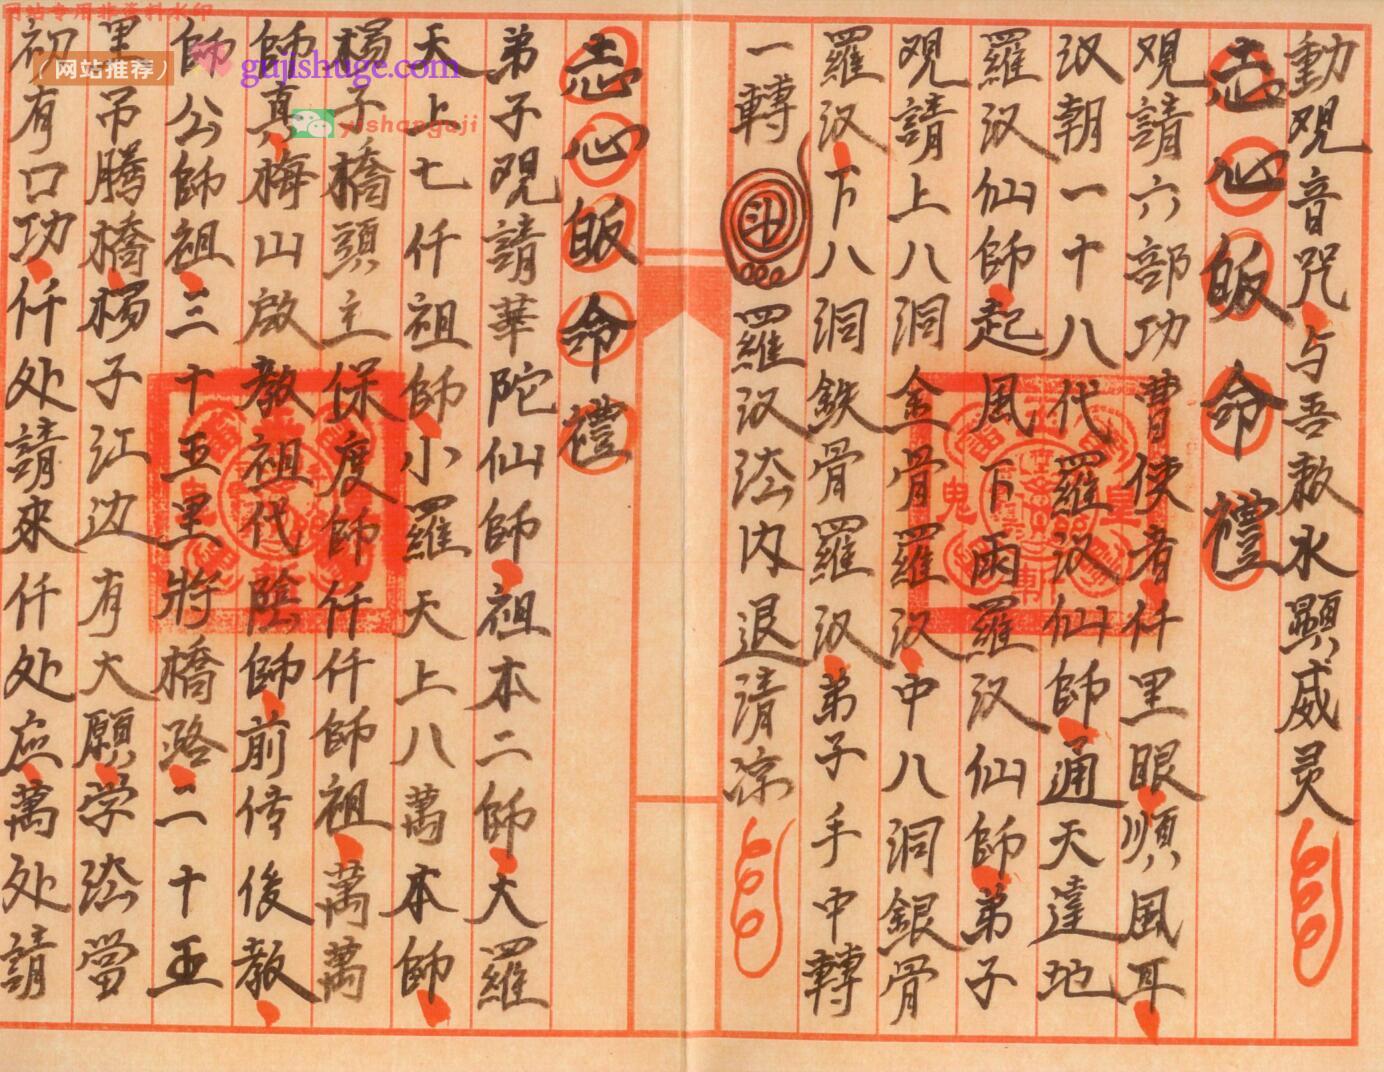 動观音咒与吾敕水顯威灵
志心皈命禮
观請六部功曹使者仟里眼順風耳
汉朝一十八代羅汉仙師通天達地
羅汉仙師起風下雨羅汉仙師弟子
观請上八洞金骨羅汉中八洞銀骨
羅汉下八洞鉄骨羅汉弟子手中轉
一轉 斗 羅汉法内退清凉
志心皈命禮
弟子观請華陀仙師祖本二師大羅
天上七仟祖師小羅天上八萬本師
楊子橋頭主保度師仟仟師祖萬萬
師真梅山啟教祖代陰師前傳後教
師公師祖三十五里將橋路二十五
里吊腾橋楊子江边有大願学法當
初有口功仟处請來仟处应萬处請
网站专用非资料水印
(网站推荐)
gujishuge.com
yishanguji